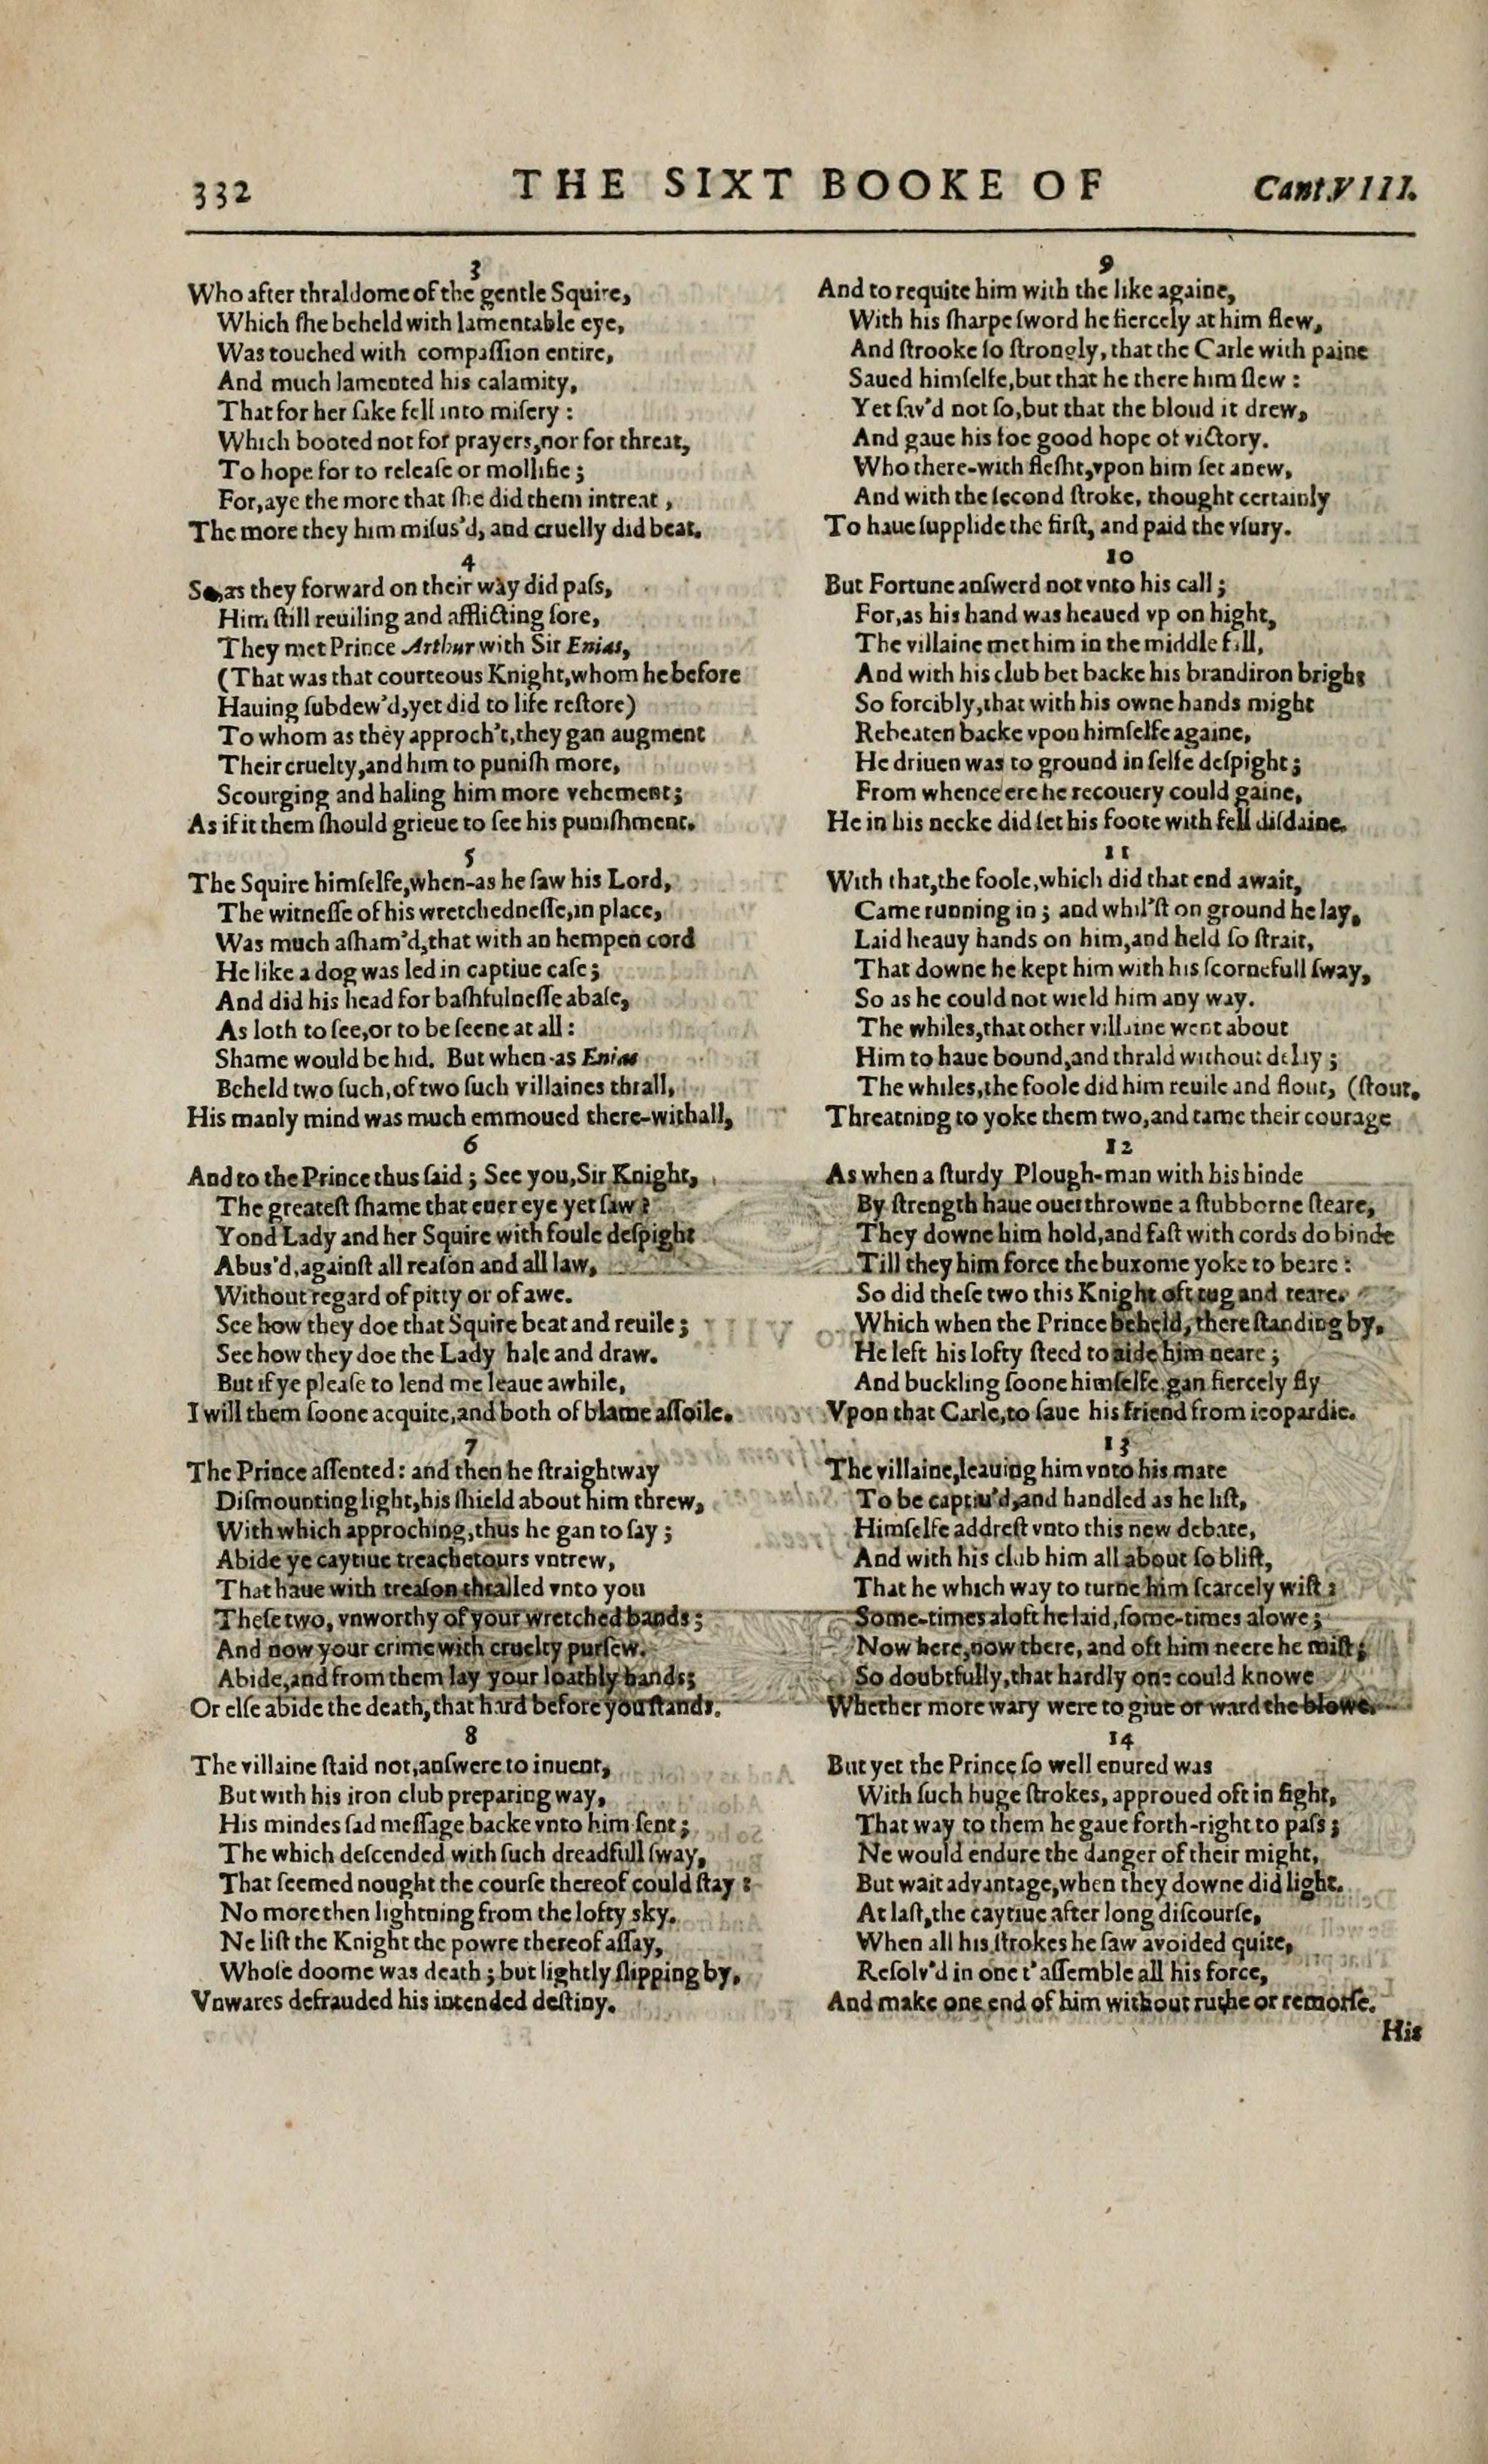 332 THE SIXT BOOKE OF Cant.VIII.
3
Who after thraldome of the gentle Squire,
Which ſhe beheld with lamentable eye,
Was touched with compaſſion entire,
And much lamented his calamity,
That for her ſake fell into miſery :
Which booted not for prayers,nor for threat,
To hope for to releaſe or mollifie ;
For,aye the more that ſhe did them intreat ,
The more they him miſus'd, and cruelly did beat.
4
So,as they forward on their way did paſs,
Him ſtill reuiling and afflicting ſore,
They met Prince Arthur with Sir Enias,
(That was that courteous Knight,whom he before
Hauing ſubdew'd,yet did to life reſtore)
To whom as they approch't,they gan augment
Their cruelty,and him to puniſh more,
Scourging and haling him more vehement;
As if it them ſhould grieue to ſee his puniſhment.
5
The Squire himſelfe,when-as he ſaw his Lord,
The witneſſe of his wretchedneſſe,in place,
Was much aſham'd,that with an hempen cord
He like a dog was led in captiue caſe;
And did his head for baſhfulneſſe abaſe,
As loth to ſee,or to be ſeene at all :
Shame would be hid. But when-as Enias
Beheld two ſuch,of two ſuch villaines thrall,
His manly mind was much emmoued there-withall,
6
And to the Prince thus ſaid ; See you,Sir Knight,
The greateſt ſhame that euer eye yet ſaw ?
Yond Lady and her Squire with foule deſpight
Abus'd,againſt all reaſon and all law,
Without regard of pitty or of awe.
See how they doe that Squire beat and reuile ;
See how they doe the Lady hale and draw.
But if ye pleaſe to lend me leaue awhile,
I will them ſoone acquite,and both of blame aſſoile.
7
The Prince aſſented : and then he ſtraightway
Diſmounting light,his ſhield about him threw,
With which approching,thus he gan to ſay ;
Abide ye caytiue treachetours vntrew,
That haue with treaſon thralled vnto you
Theſe two, vnworthy of your wretched bands ;
And now your crime with cruelty purſew.
Abide,and from them lay your loathly hands;
Or elſe abide the death,that hard before you ſtands.
8
The villaine ſtaid not,anſwere to inuent,
But with his iron club preparing way,
His mindes ſad meſſage backe vnto him ſent ;
The which deſcended with ſuch dreadfull ſway,
That ſeemed nought the courſe thereof could ſtay :
No more then lightning from the lofty sky.
Ne liſt the Knight the powre thereof aſſay,
Whoſe doome was death ; but lightly ſlipping by,
Vnwares defrauded his intended deſtiny.
9
And to requite him with the like againe,
With his ſharpe ſword he fiercely at him flew,
And ſtrooke ſo ſtrongly, that the Carle with paine
Saued himſelfe,but that he there him ſlew :
Yet ſav'd not ſo,but that the bloud it drew,
And gaue his foe good hope of victory.
Who there-with fleſht,vpon him ſet anew,
And with the ſecond ſtroke, thought certainly
To haue ſupplide the firſt, and paid the vſury.
10
But Fortune anſwerd not vnto his call ;
For,as his hand was heaued vp on hight,
The villaine met him in the middle fall,
And with his club bet backe his brandiron bright
So forcibly,that with his owne hands might
Rebeaten backe vpon himſelfe againe,
He driuen was to ground in ſelfe deſpight ;
From whence ere he recouery could gaine,
He in his necke did ſet his foote with fell diſdaine.
11
With that,the foole,which did that end await,
Came running in ; and whil'ſt on ground he lay,
Laid heauy hands on him,and held ſo ſtrait,
That downe he kept him with his ſcornefull ſway,
So as he could not wield him any way.
The whiles,that other villaine went about
Him to haue bound,and thrald without delay ;
The whiles,the foole did him reuile and flout, (ſtout.
Threatning to yoke them two,and tame their courage
12
As when a ſturdy Plough-man with his hinde
By ſtrength haue ouerthrowne a ſtubborne ſteare,
They downe him hold,and faſt with cords do binde
Till they him force the buxome yoke to beare :
So did theſe two this Knight oft tug and teare.
Which when the Prince beheld, there ſtanding by,
He left his lofty ſteed to aide him neare ;
And buckling ſoone himſelfe,gan fiercely fly
Vpon that Carle,to ſaue his friend from ieopardie.
13
The villaine,leauing him vnto his mate
To be captiu'd,and handled as he liſt,
Himſelfe addreſt vnto this new debate,
And with his club him all about ſo bliſt,
That he which way to turne him ſcarcely wiſt :
Some-times aloft he laid,ſome-times alowe ;
Now here,now there, and oft him neere he miſt ;
So doubtfully,that hardly one could knowe
Whether more wary were to giue or ward the blowe.
14
But yet the Prince ſo well enured was
With ſuch huge ſtrokes, approued oft in fight,
That way to them he gaue forth-right to paſs ;
Ne would endure the danger of their might,
But wait advantage,when they downe did light.
At laſt,the caytiue after long diſcourſe,
When all his ſtrokes he ſaw avoided quite,
Reſolv'd in one t'aſſemble all his force,
And make one end of him without ruthe or remorſe.
His